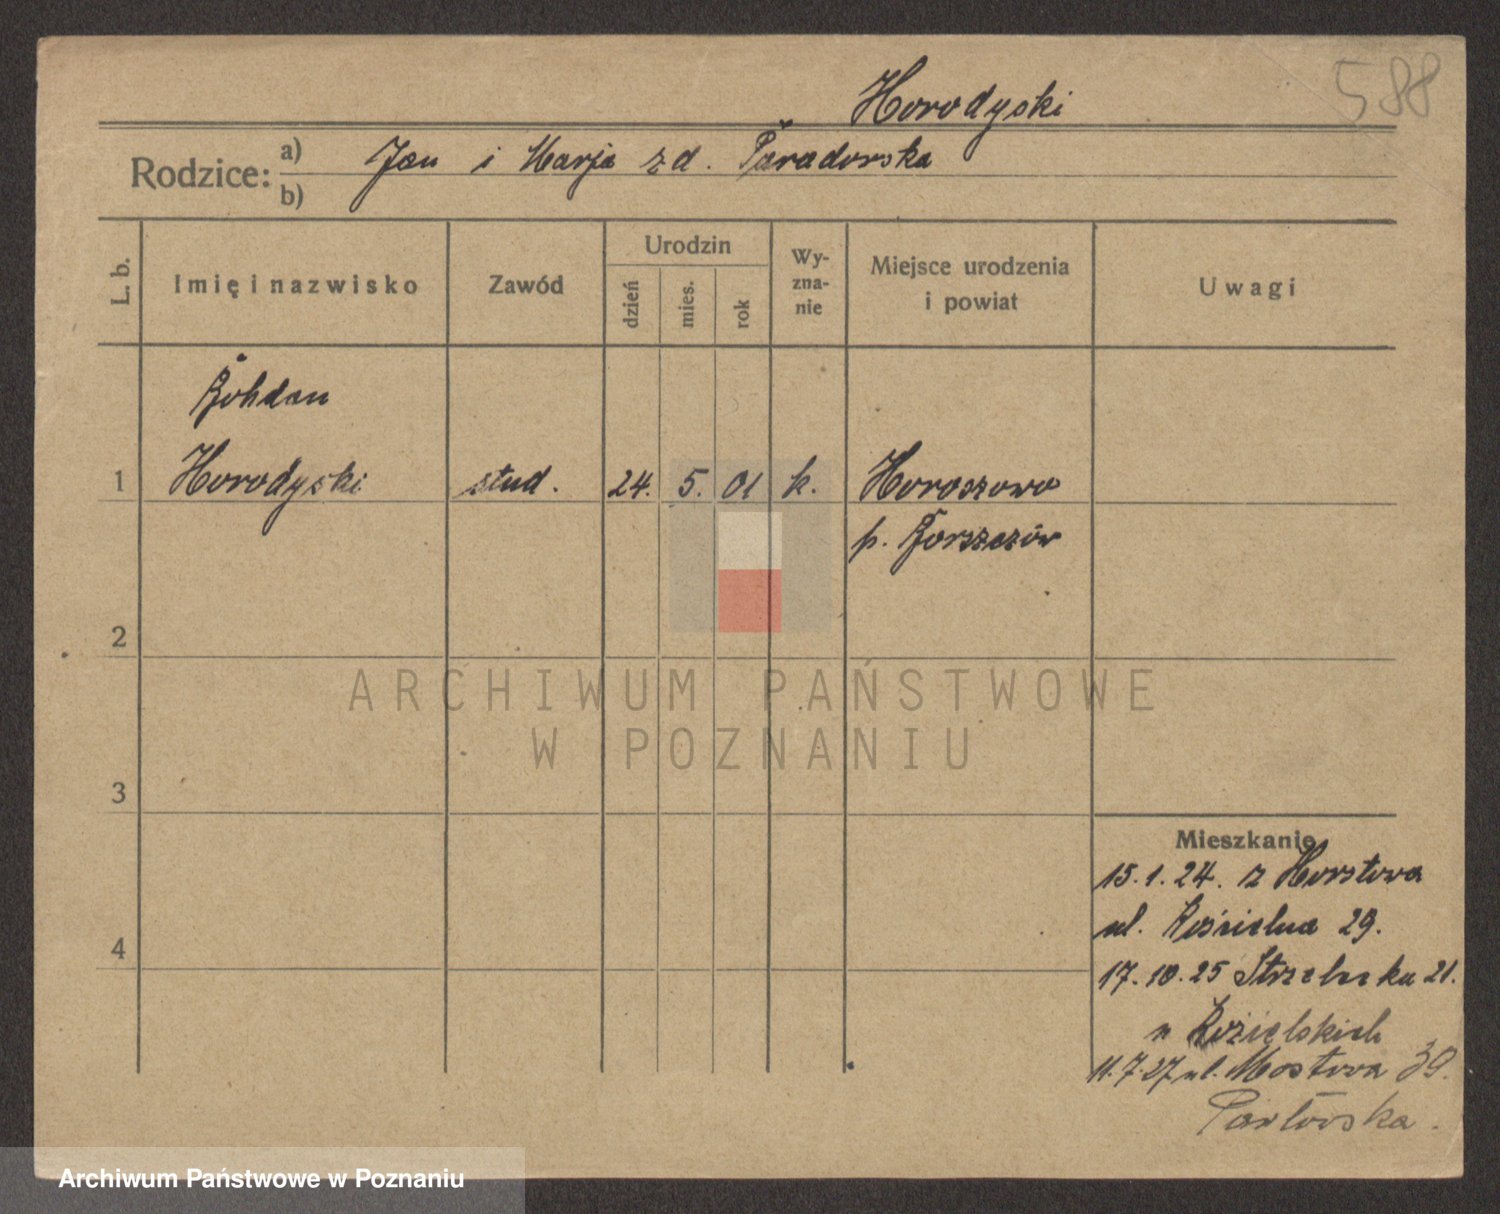 588
Horodyski
Rodzice: a) Jan i Marja z d. Paradowska
b)
L. b.
Imię i nazwisko
Zawód
Urodzin
dzień
mies.
rok
Wy-
zna-
nie
Miejsce urodzenia
i powiat
Uwagi
Bohdan
1 Horodyski stud. 24. 5. 01 k. Horoszowo
p. Borszczów
2
ARCHIWUM PAŃSTWOWE
W POZNANIU
3
Mieszkanie
15.1.24. z
ul. Kościelna 29.
4
17.10.25 Strzelecka 21.
u Kozielskich
11.7.27 ul. Mostowa 39.
Archiwum Państwowe w Poznaniu